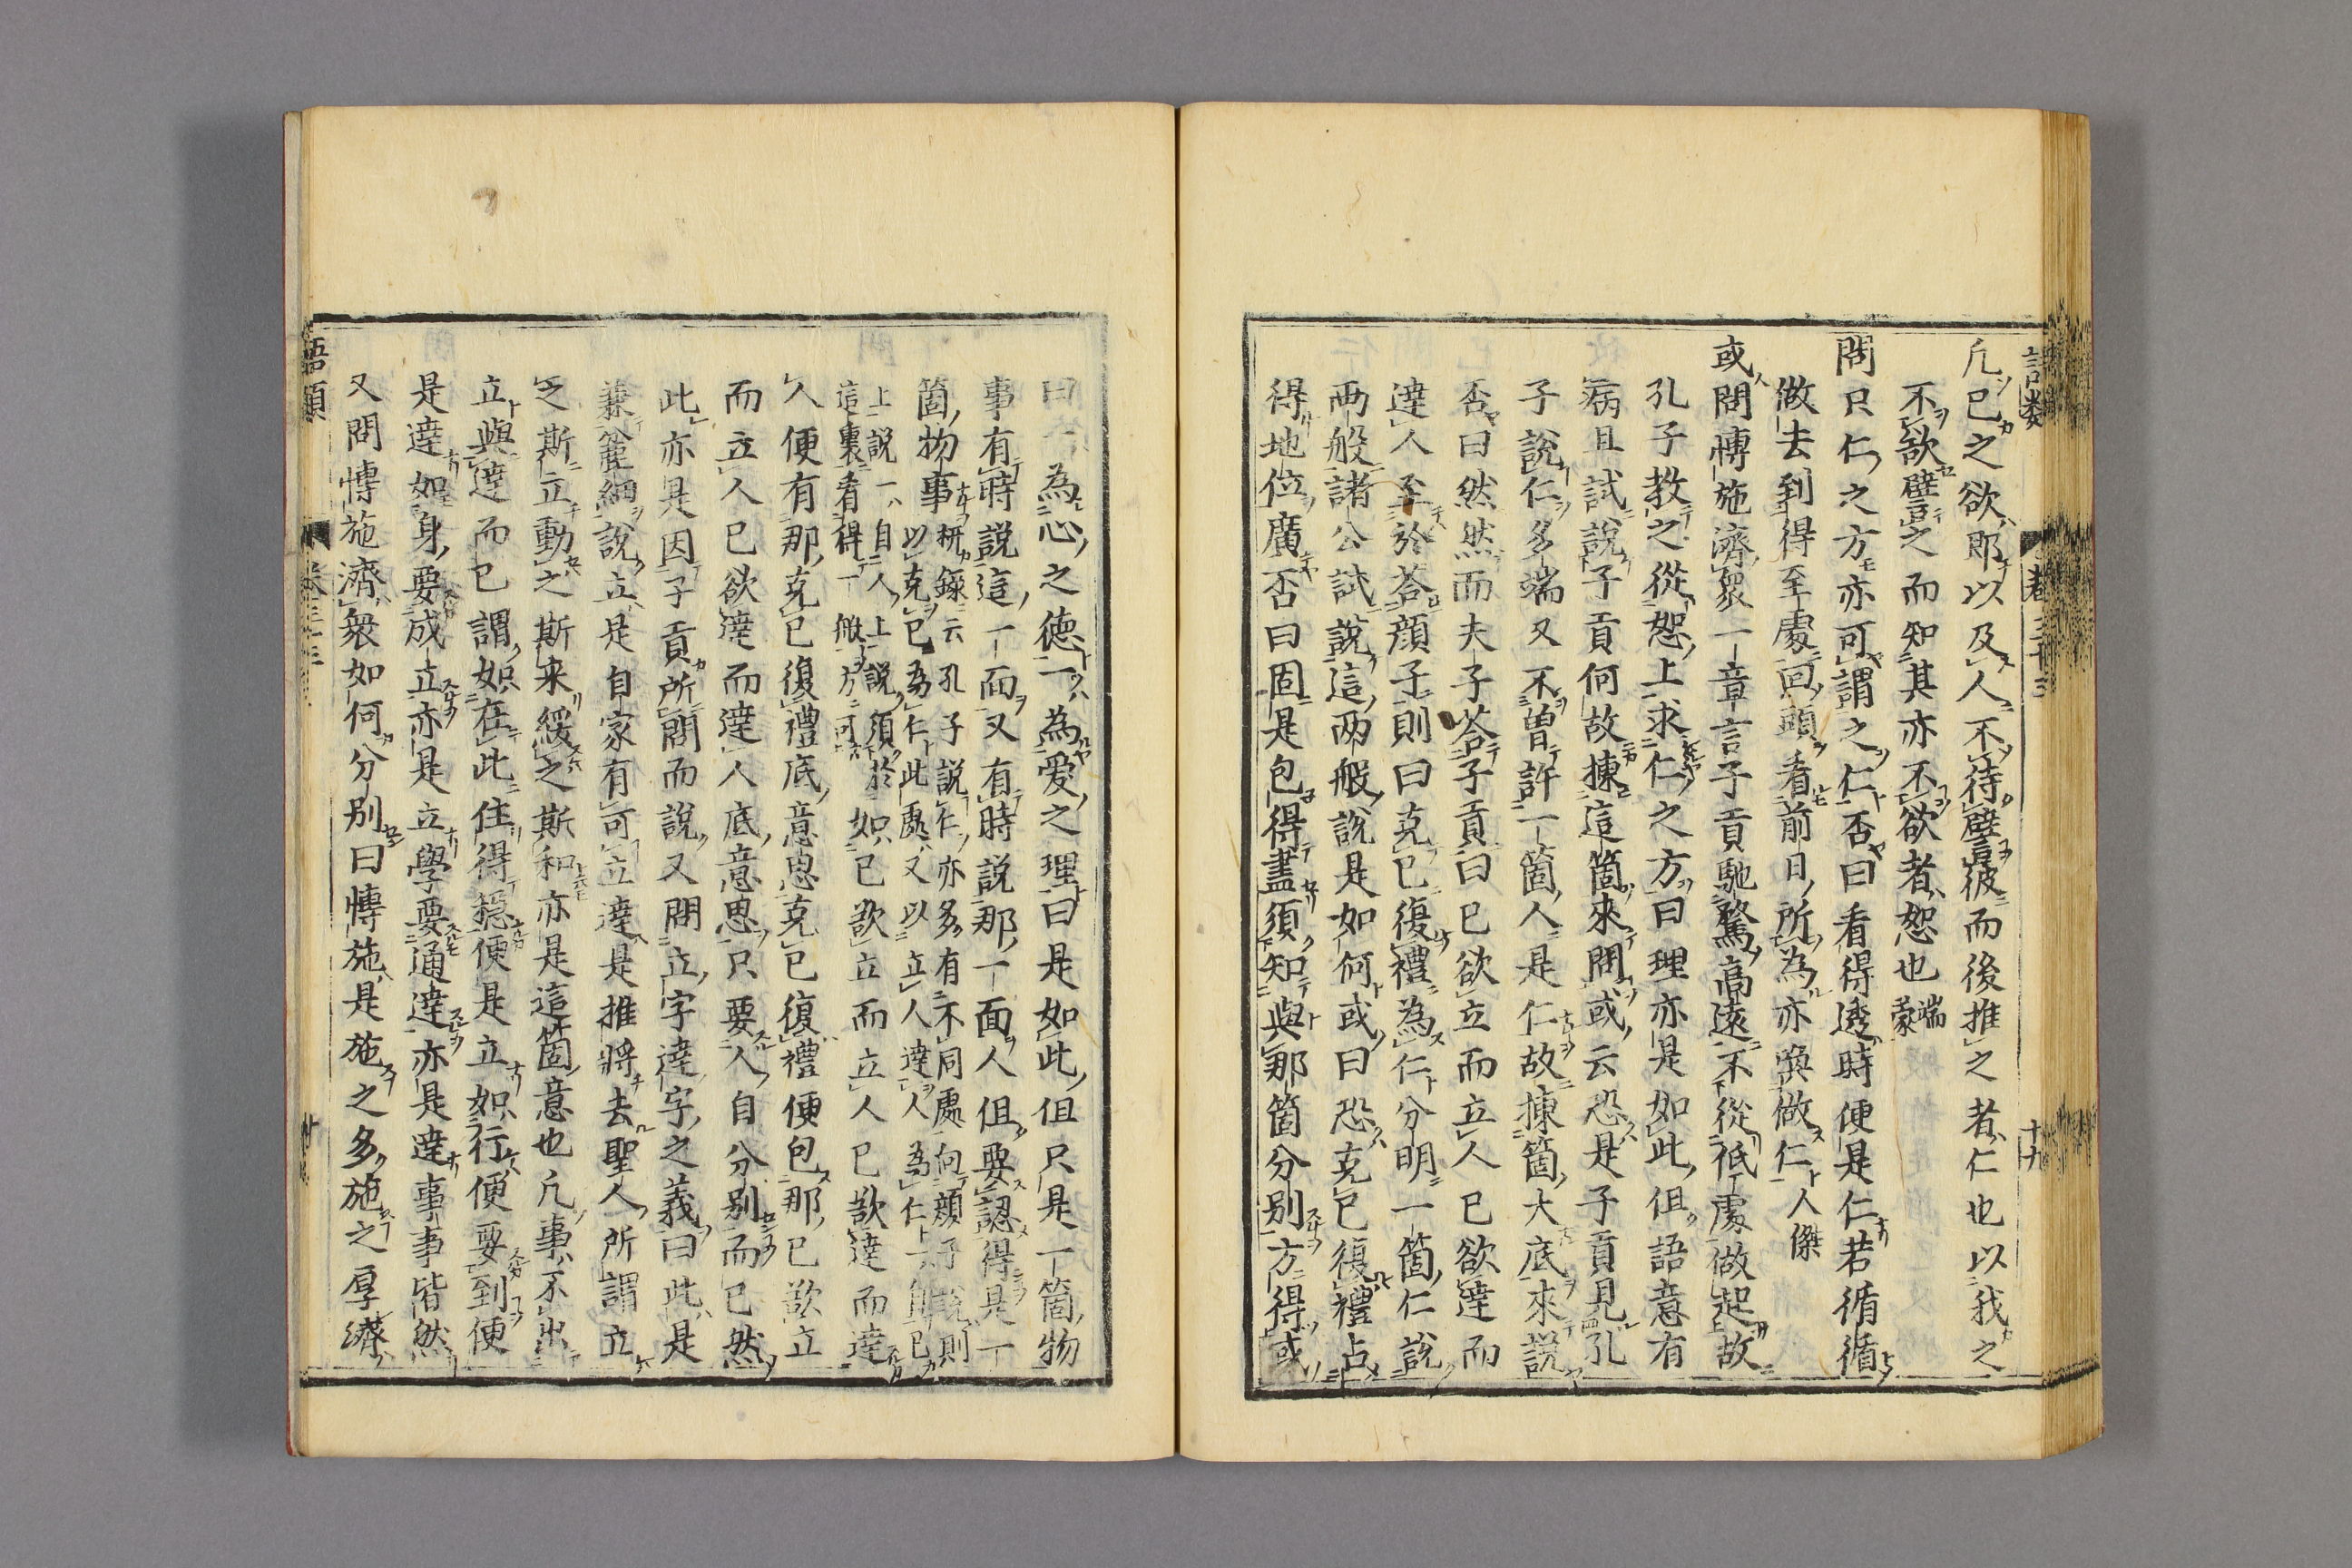 凢己之欲即以及人不待譬彼而後推之者仁也以我之
不欲譬之而知其亦不欲者恕也端蒙
問只仁之方亦可謂之仁否曰看得透時便是仁若循循
做去到得至處回頭看前日所為亦喚做仁人傑
或問博施濟衆一章言子貢馳騖高遠不從低處做起故
孔子教之從恕上求仁之方曰理亦是如此但語意有
病且試說子貢何故揀這箇來問或云恐是子貢見孔
子說仁多端又不曽許一箇人是仁故揀箇大底來説
否曰然然而夫子荅子貢曰己欲立而立人己欲達而
達人至於荅顔子則曰克己復禮為仁分明一箇仁說
兩般諸公試說這两般說是如何或曰恐克己復禮占
得地位廣否曰固是包得盡須知與那箇分别方得或
曰一為心之德一為愛之理曰是如此但只是一箇物
事有時説這一面又有時説那一面人但要認得是一
箇物事枅録云孔子說仁亦多有不同處向顔子說則
以克己為仁此處又以立人達人為仁一自己
上説一自人上説須於
這裏看得一般方可如己欲立而立人己欲達而達
人便有那克己復禮底意思克己復禮便包那己欲立
而立人己欲達而達人底意思只要人自分别而已然
此亦是因子貢所問而說又問立字達字之義曰此是
兼麄細說立是自家有可立達是推將去聖人所謂立
之斯立動之斯来綏之斯和亦是這箇意也凢事不出
立與達而已謂如在此住得穏便是立如行便要到便
是達如身要成立亦是立學要通達亦是達事事皆然
又問博施濟衆如何分别曰博施是施之多施之厚濟
語類
卷三十三
十九